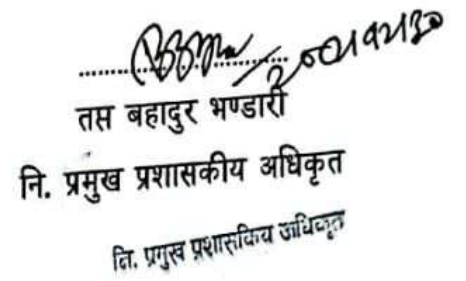 तप्त बहादुर भण्डारी
नि. प्रमुख प्रशासकीय अधिकृत
नि. प्रमुख प्रशासकिय अधिकृत